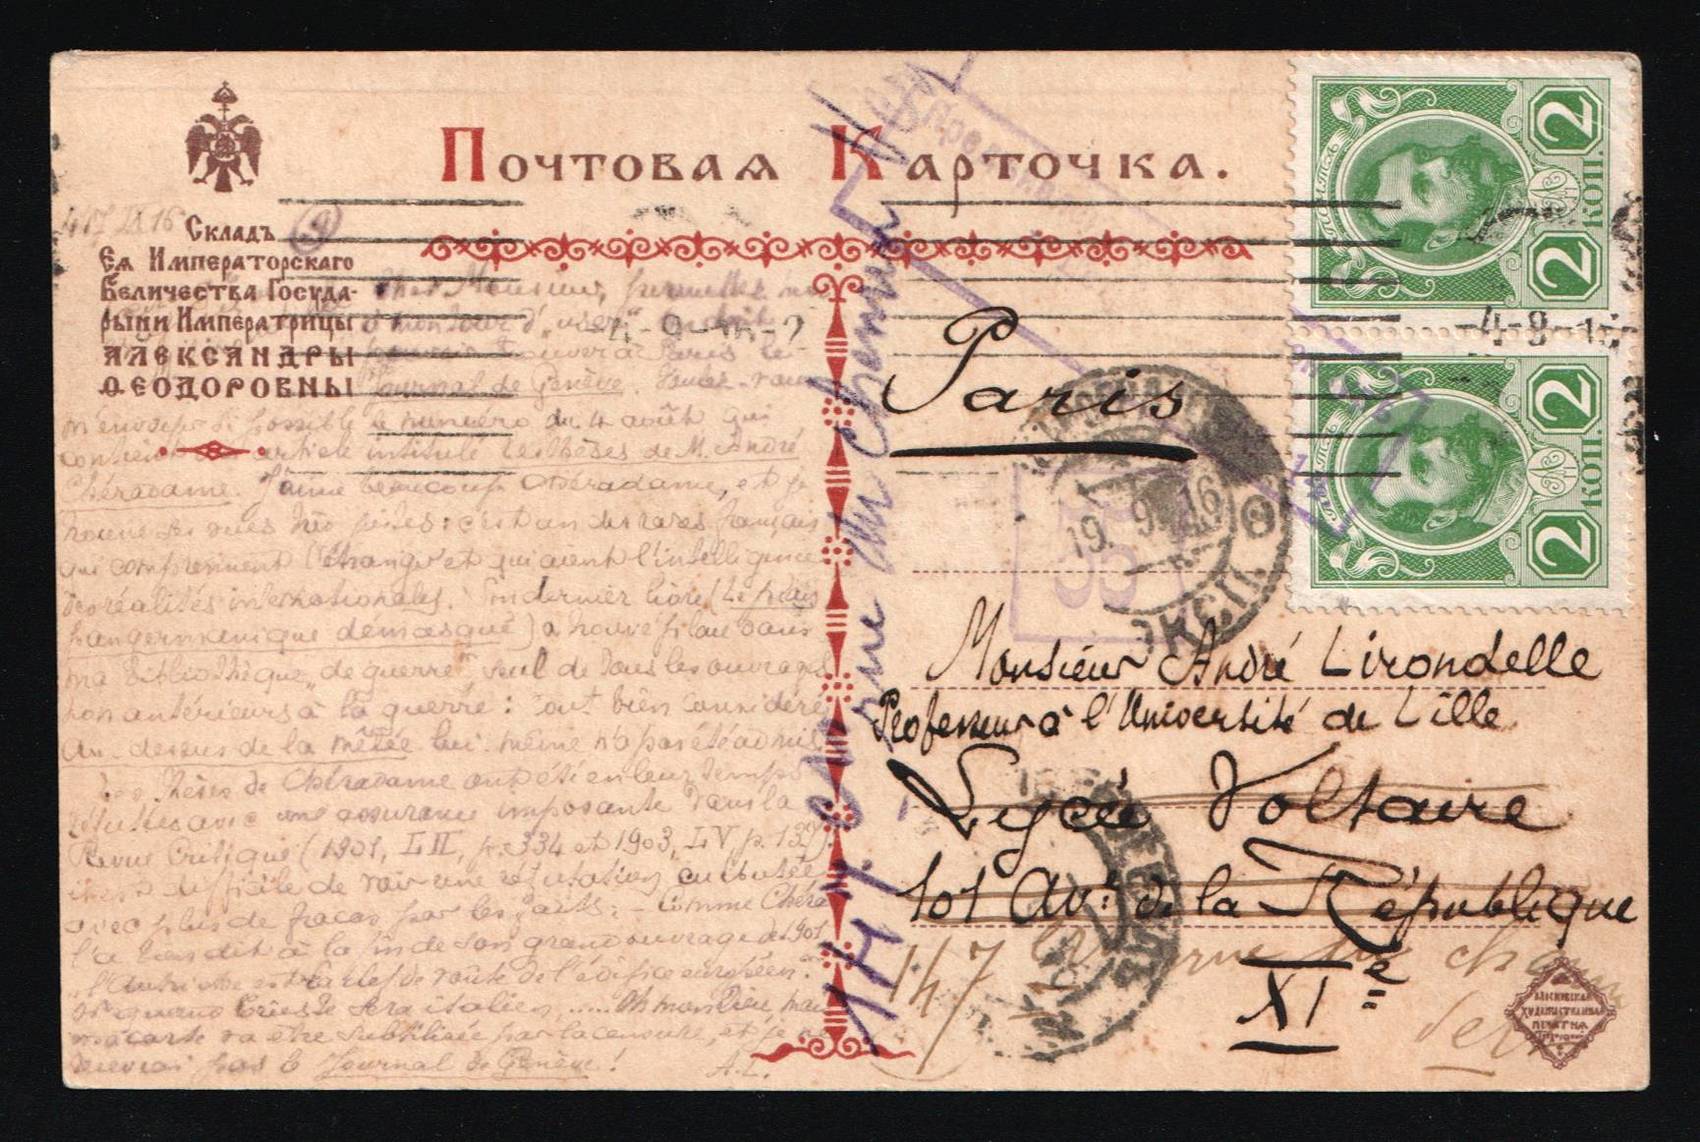 Почтовая Карточка.
Складъ
Ея Императорскаго
Величества Госуда-
рыни Императрицы
Александры
Ѳеодоровны
2 2 КОП.
2 2 КОП.
4-9-16
19. 9. 16
ЭКСП.
Paris
Monsieur André Lirondelle
Professeur à l'Université de Lille
Lycée Voltaire
101 Av. de la République
XIe
147
147 avenue du chemin vert
Cher Monsieur, permettez
Journal de Genève. Voulez-vous
m'envoyer si possible le numéro du 4 août qui
contient un article intitulé Les thèses de M. André
Chéradame. J'aime beaucoup Chéradame, et je
trouve ses vues très justes: c'est un des rares français
qui comprennent l'étranger et qui aient l'intelligence
des réalités internationales. Son dernier livre (Le plan
pangermanique démasqué) a trouvé place dans
ma bibliothèque "de guerre" seul de tous les ouvrages
non antérieurs à la guerre: Tout bien considéré
Au-dessus de la mêlée lui-même n'a pas été admis
Les thèses de Chéradame ont été en leur temps
réfutées avec une assurance imposante dans la
Revue Critique (1901, LII, p. 334 et 1903, LV, p. 137).
difficile de voir une réfutation culbutée
avec plus de fracas par les faits: - Comme Chéra
l'a bien dit à la fin de son grand ouvrage de 1901
"l'Autriche est la clef de voûte de l'édifice européen".
quand Trieste sera italien, ..... Oh mon Dieu, mai
ma carte va être par la censure, et je
pas le Journal de Genève!
A.L.